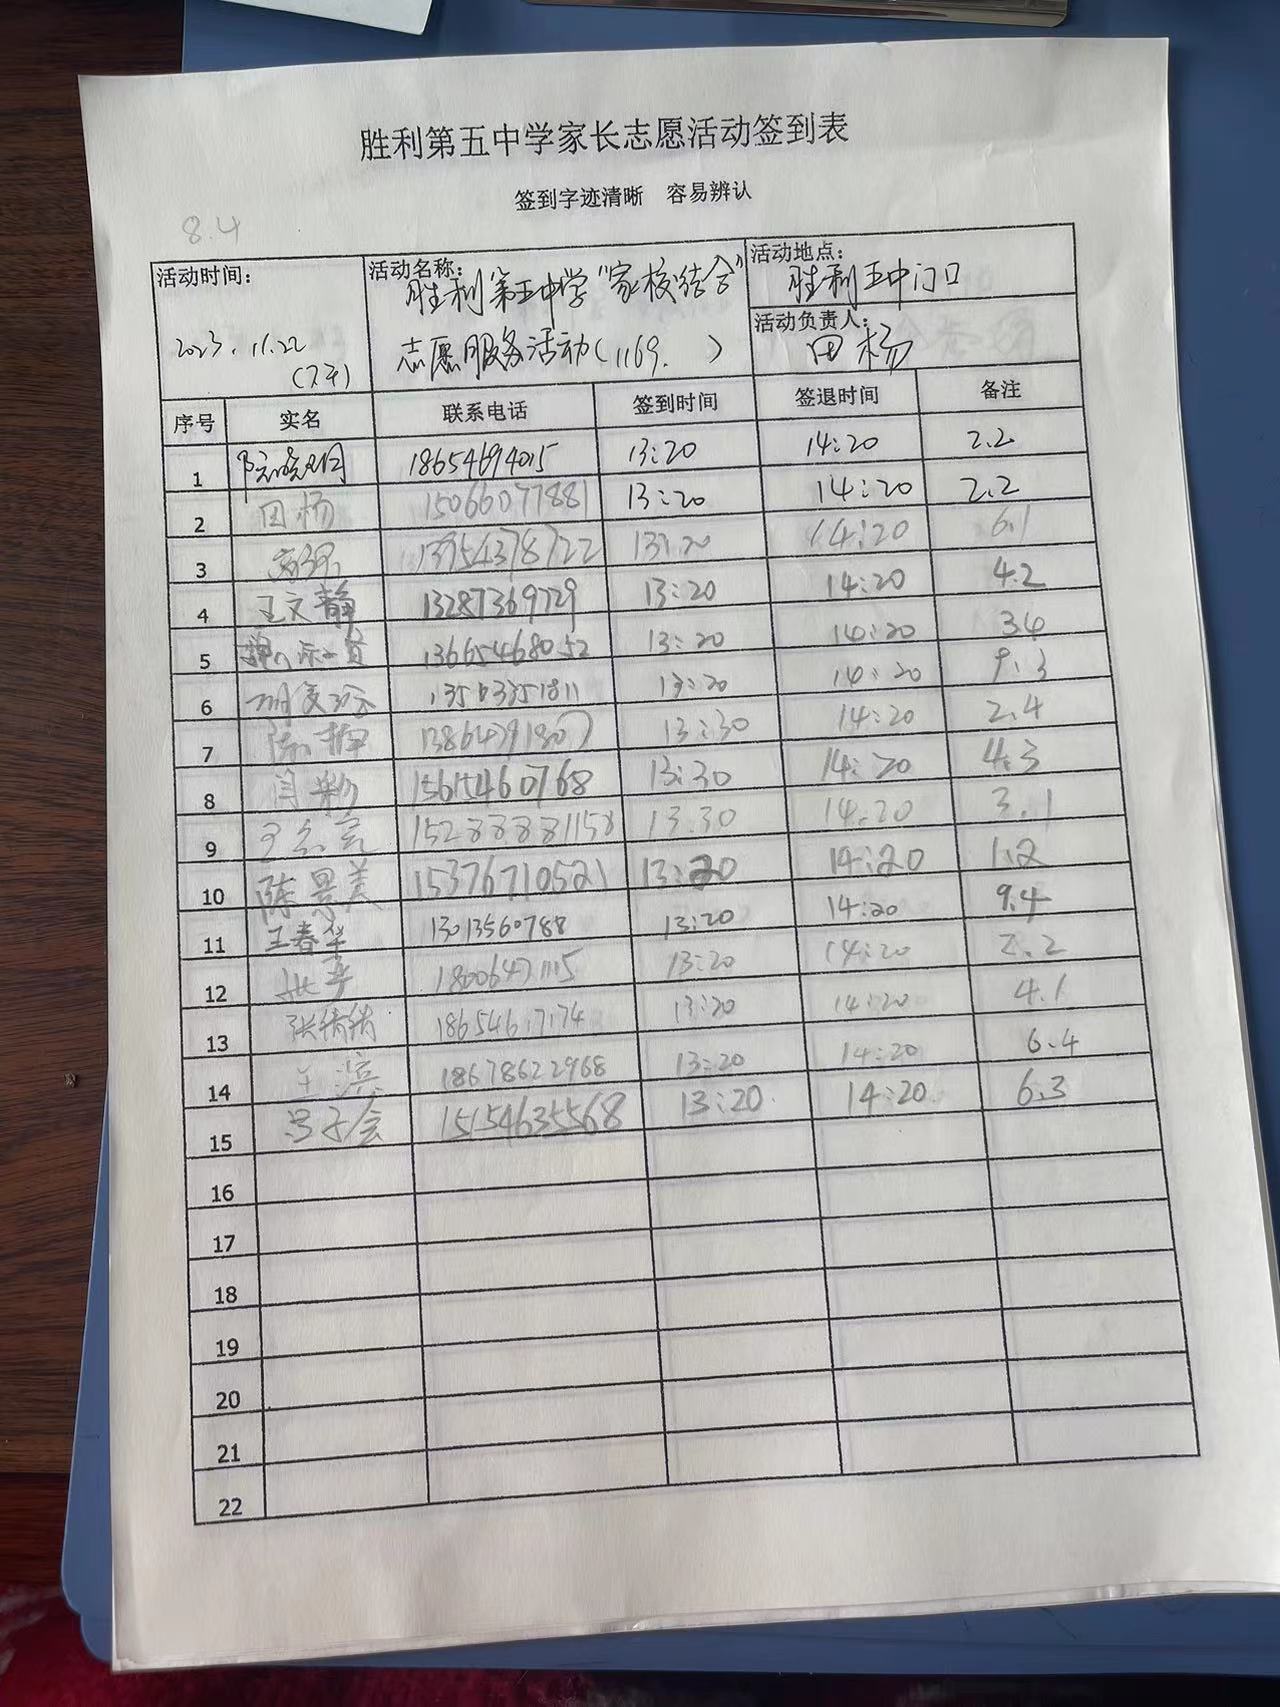 胜利第五中学家长志愿活动签到表
签到字迹清晰 容易辨认
8.4
活动时间： 2023.11.22 (下午)
活动名称： 胜利第五中学“家校结合”
志愿服务活动(1169. )
活动地点： 胜利五中门口
活动负责人： 田杨
序号 实名 联系电话 签到时间 签退时间 备注
1 18654694015 13:20 14:20 2.2
2 田杨 15066077881 13:20 14:20 2.2
3 13954378722 13:20 14:20 6.1
4 王文静 13287369729 13:20 14:20 4.2
5 13665468052 13:20 14:20 3.4
6 13563351811 13:20 14:20 9.3
7 13:30 14:20 2.4
8 闫彩 15615460768 13:30 14:20 4.3
9 15288881158 13.30 14.20 3.1
10 陈景美 15376710521 13:20 14:20 1.2
11 王春华 13013560788 13:20 14:20 9.4
12 18006471115 13:20 14:20 2.2
13 张倩倩 13:20 14:20 4.1
14 王滨 18678622968 13:20 14:20 6.4
15 15154635568 13:20. 14:20. 6.3
16
17
18
19
20
21
22